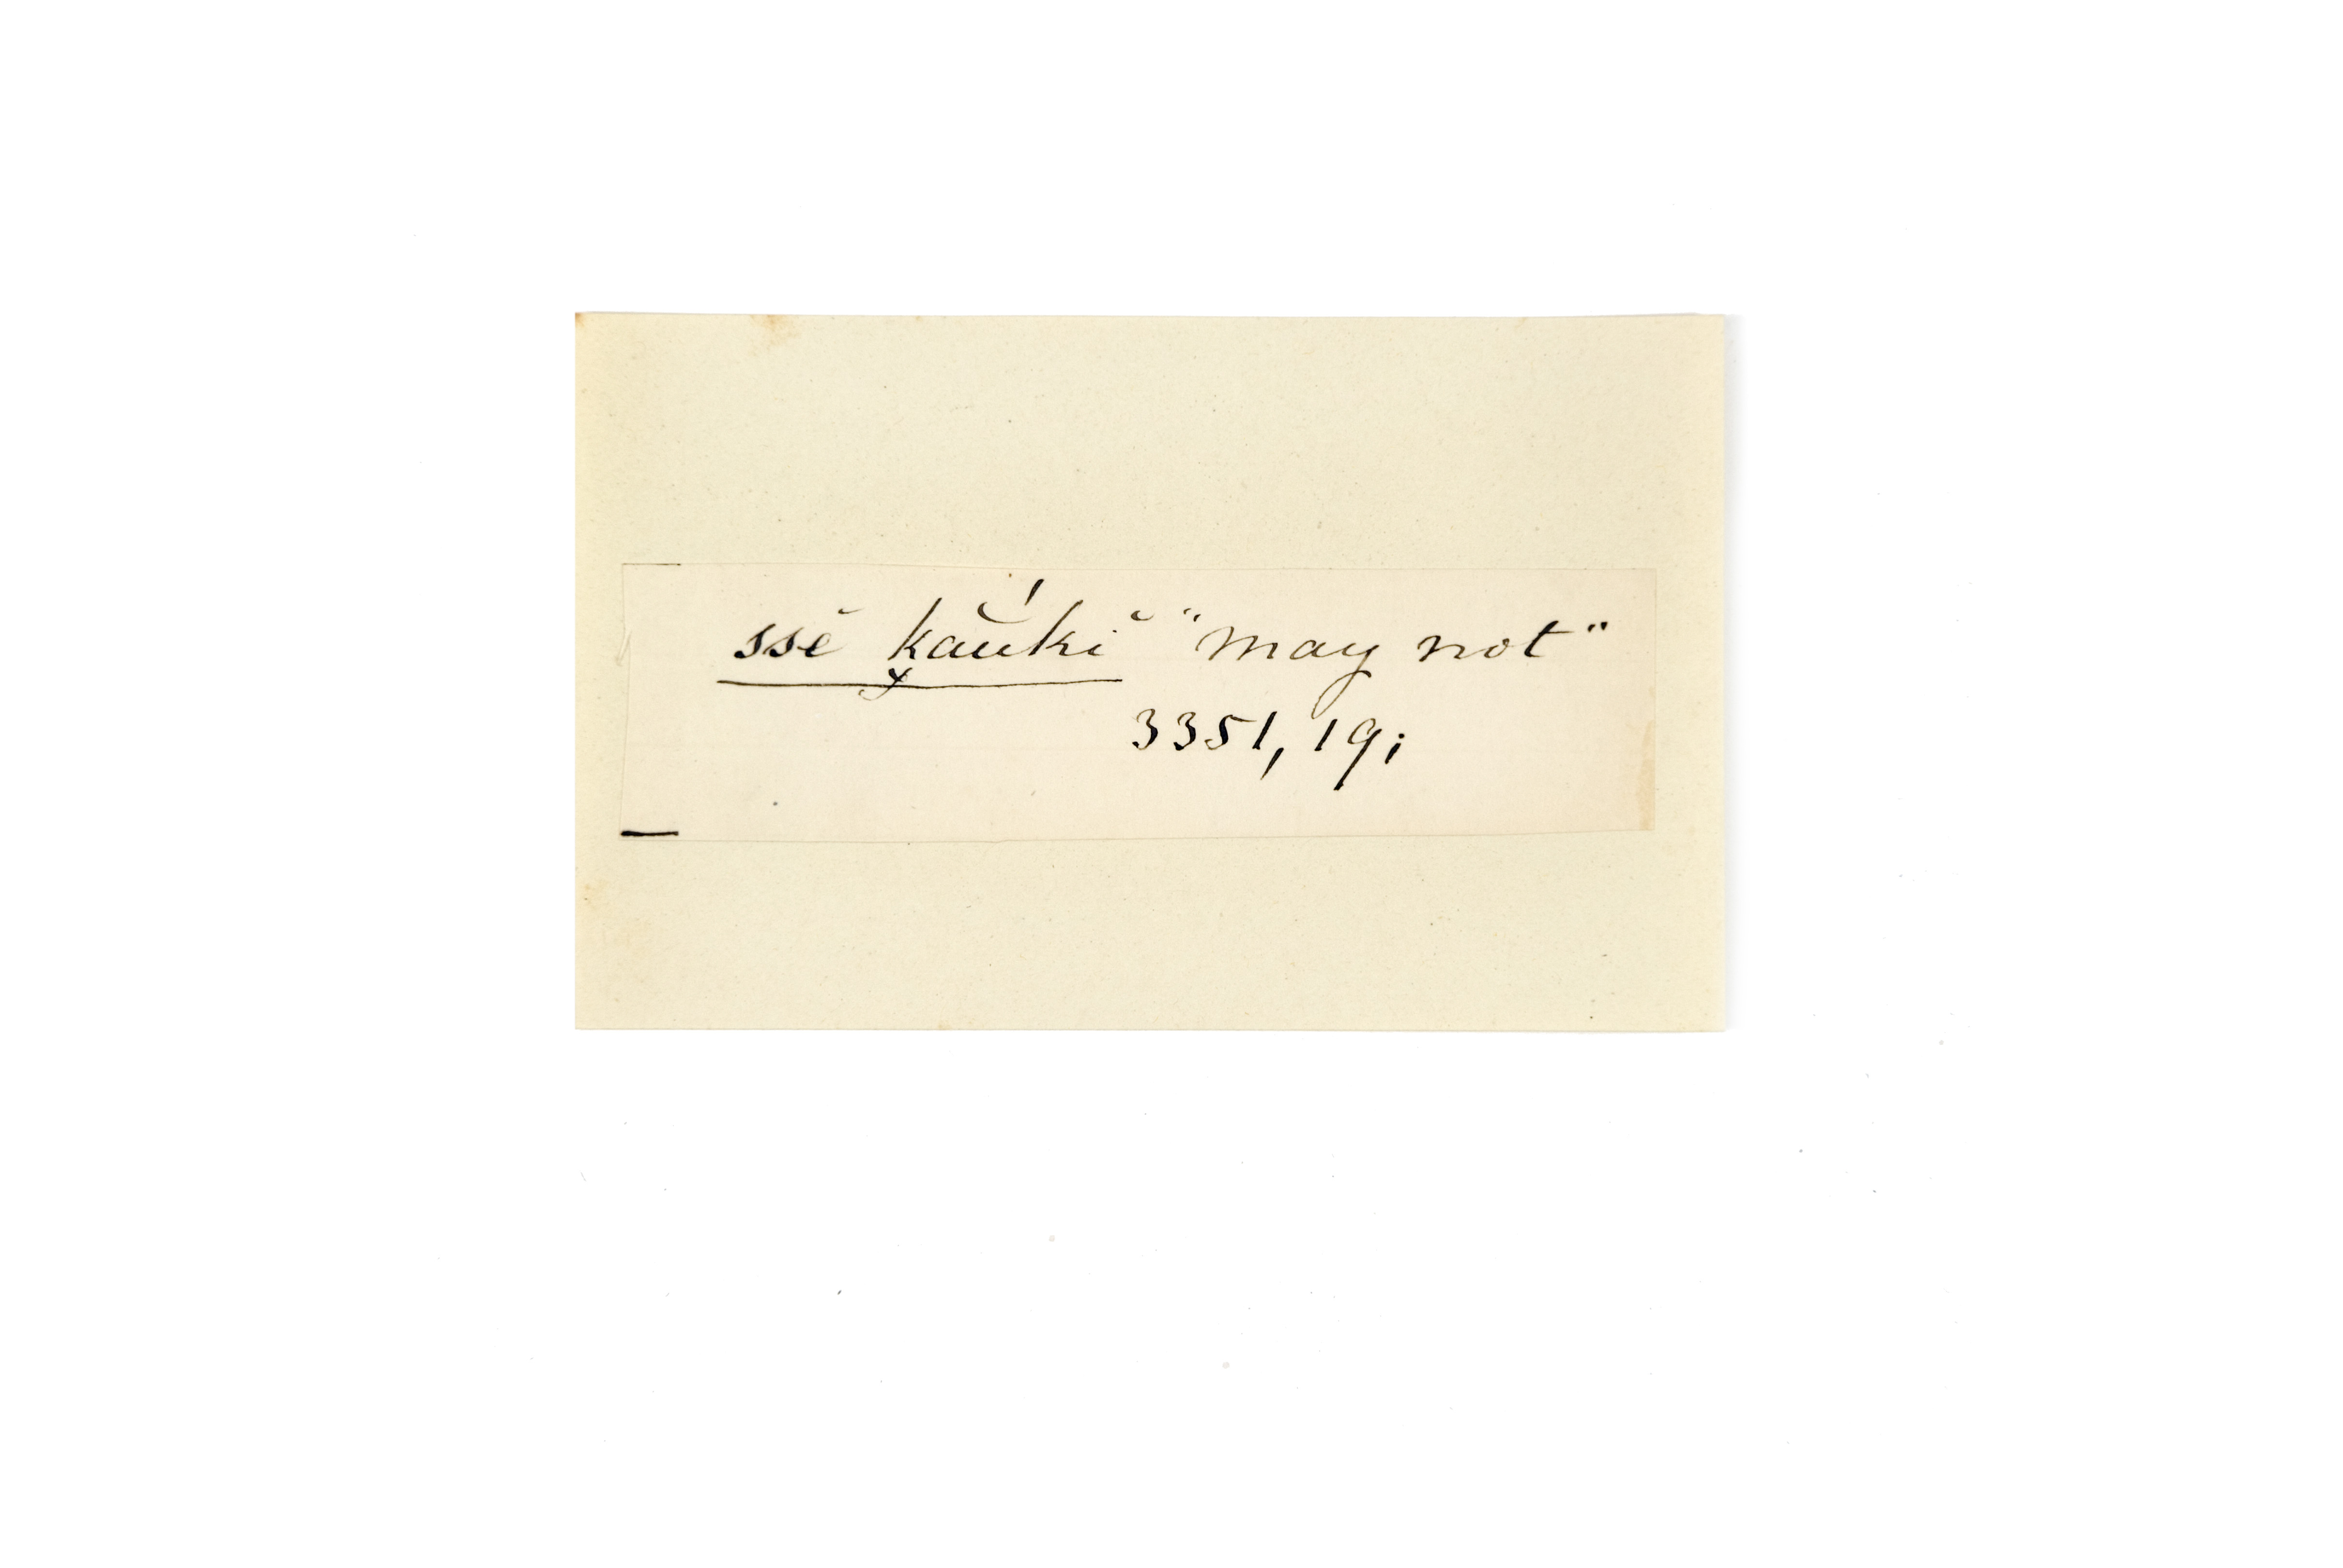 ssĕ k̬aŭ́kĭ "may not"
3351, 19;